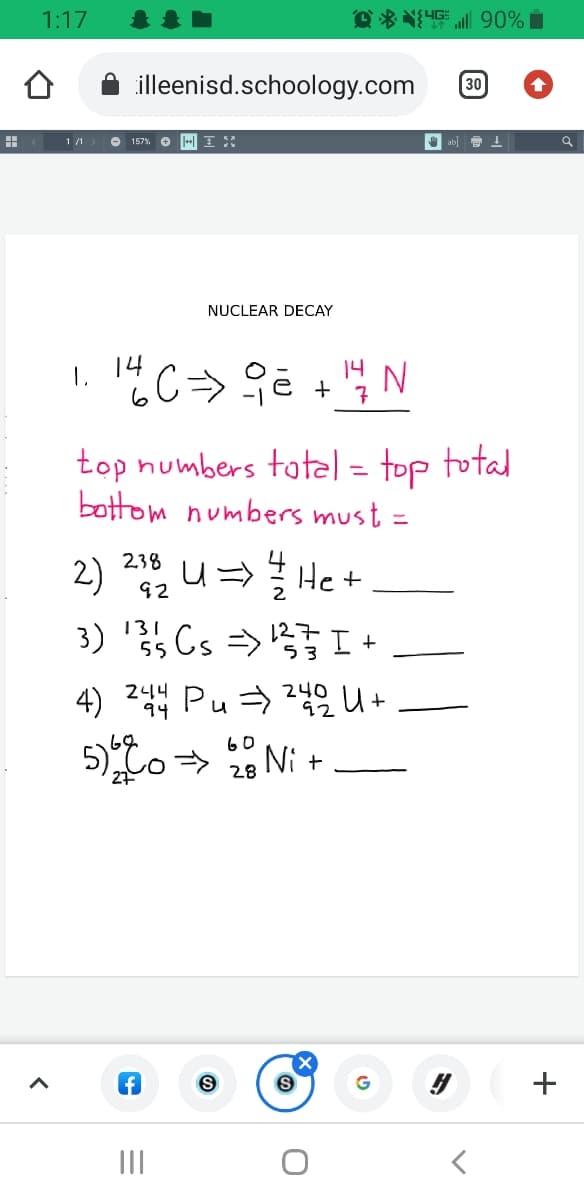 1:17 4G 90%
illeenisd.schoology.com 30
1 /1 157% ab]
NUCLEAR DECAY
1. ¹⁴₆C ⇒ ⁰₋₁ē + ¹⁴₇N
top numbers total = top total
bottom numbers must =
2) ²³⁸₉₂U ⇒ ⁴₂He + ____
3) ¹³¹₅₅Cs ⇒ ¹²⁷₅₃I + ____
4) ²⁴⁴₉₄Pu ⇒ ²⁴⁰₉₂U + ____
5) ⁶⁰₂₇Co ⇒ ⁶⁰₂₈Ni + ____
f S S G y +